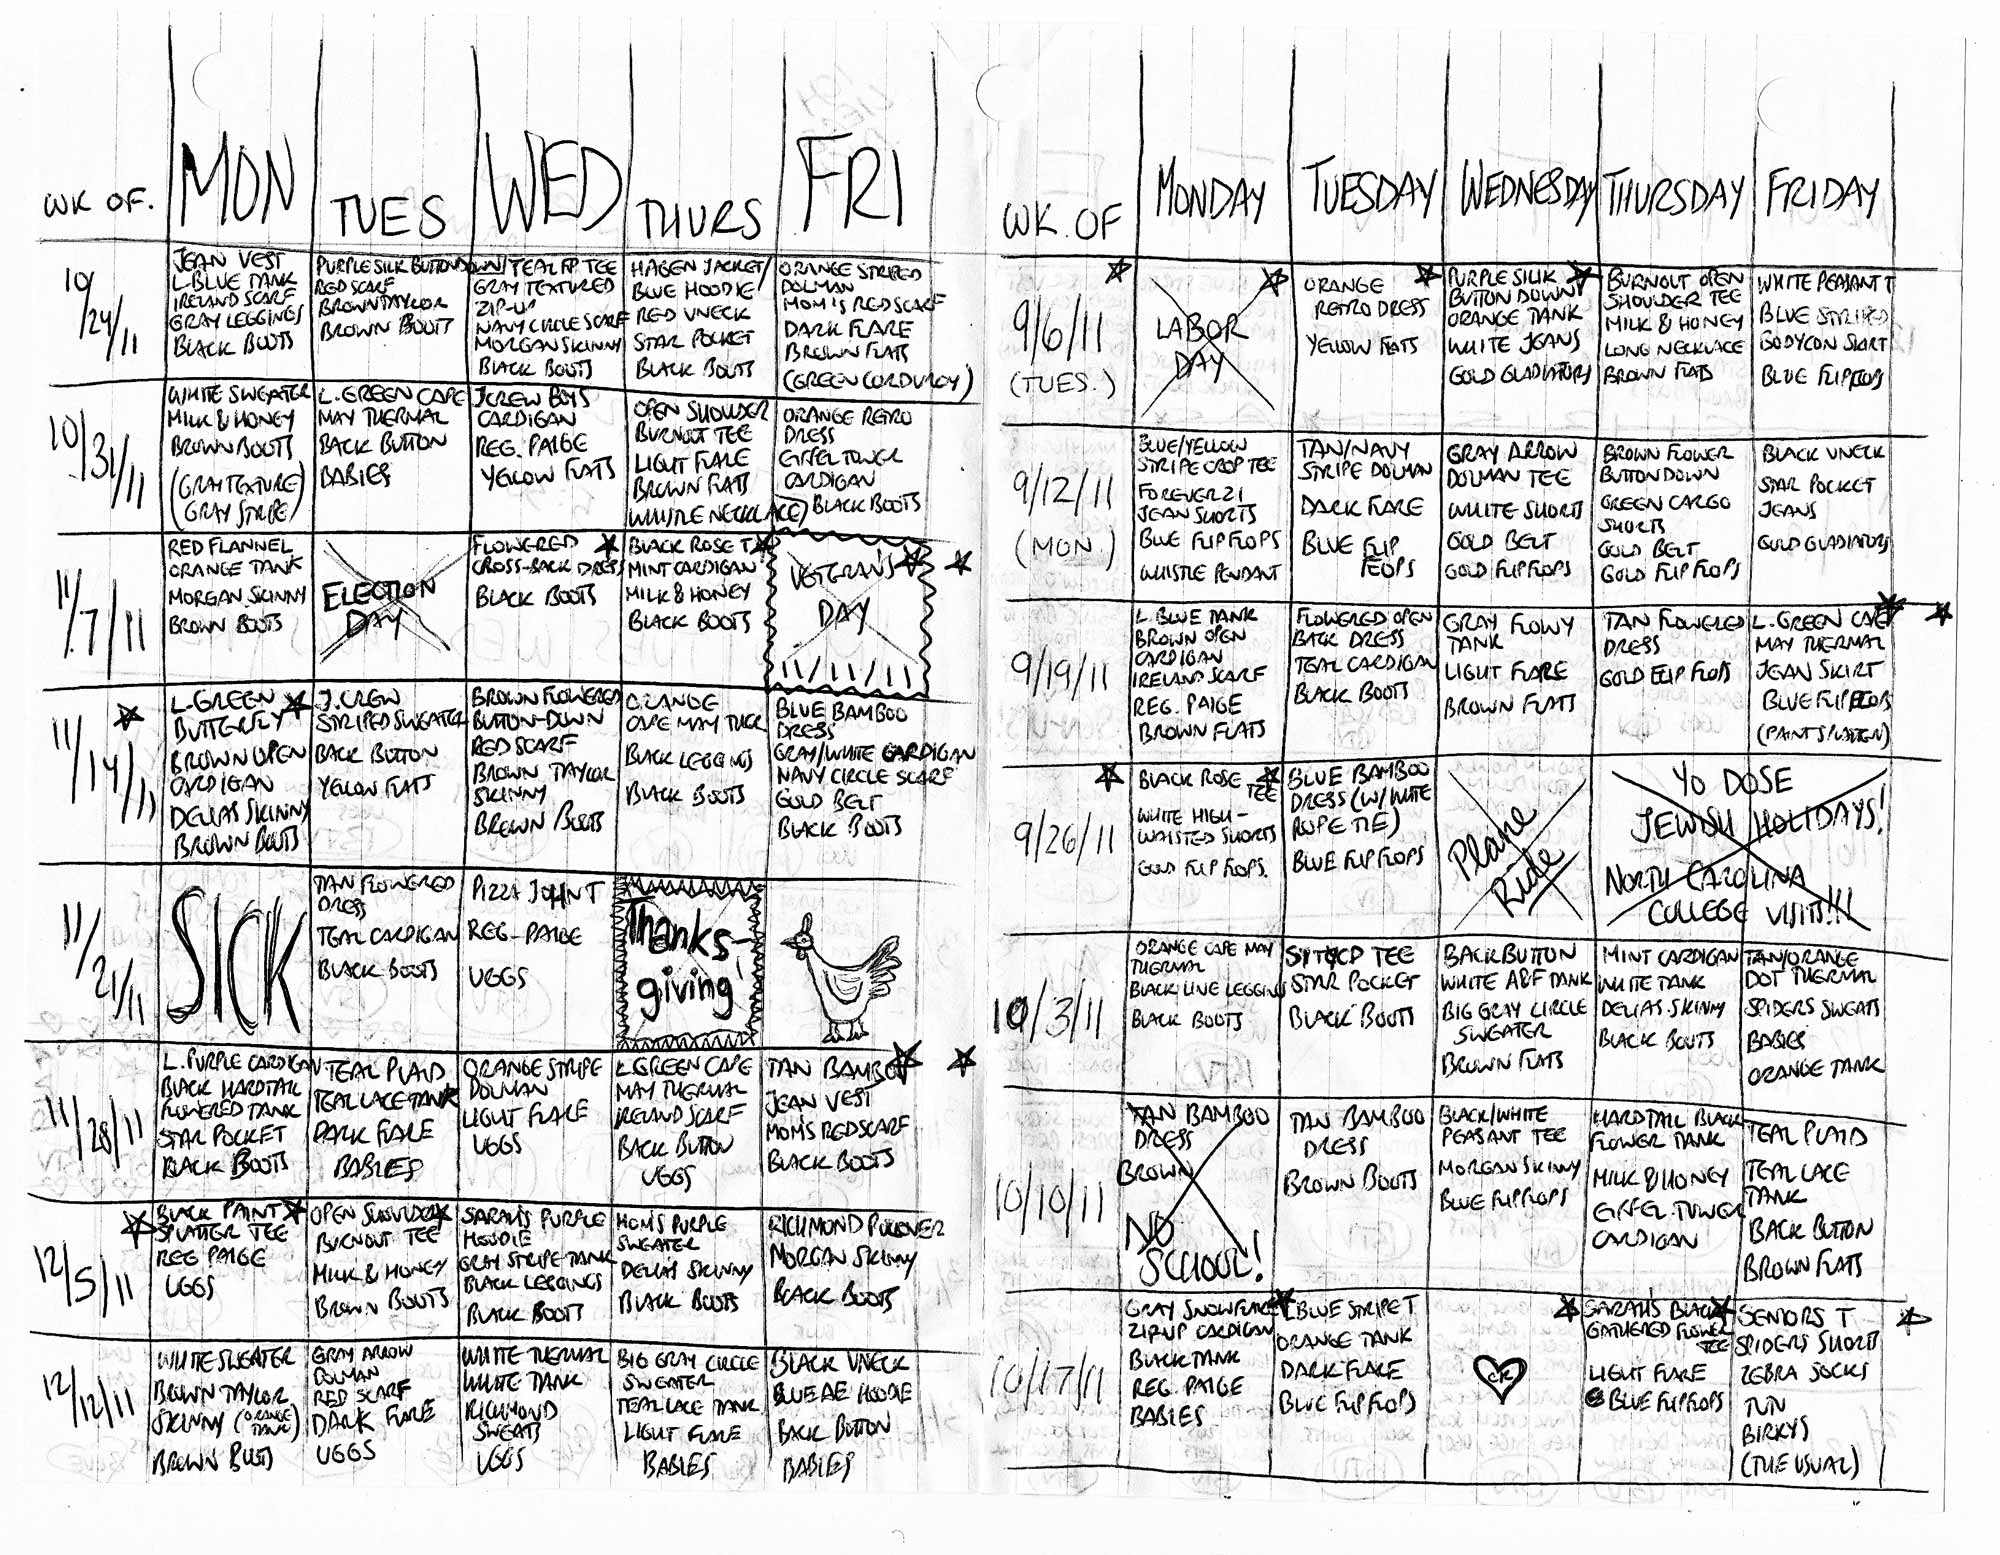 WK OF.
MON
TUES
WED
THURS
FRI
10/24/11
JEAN VEST
L.BLUE TANK
IRELAND SCARF
GRAY LEGGINGS
BLACK BOOTS
PURPLE SILK BUTTONDOWN/
RED SCARF
BROWN TAYLOR
BROWN BOOTS
TEAL FP TEE
GRAY TEXTURED
ZIP-UP
NAVY CIRCLE SCARF
MORGAN SKINNY
BLACK BOOTS
HAGEN JACKET/
BLUE HOODIE
RED VNECK
STAR POCKET
BLACK BOOTS
ORANGE STRIPED
DOLMAN
MOM'S RED SCARF
DARK FLARE
BROWN FLATS
(GREEN CORDUROY)
10/31/11
WHITE SWEATER
MILK & HONEY
BROWN BOOTS
(GRAY TEXTURE)
(GRAY STRIPE)
L. GREEN CAPE
MAY THERMAL
BACK BUTTON
BABIES
JCREW BOYS
CARDIGAN
REG. PAIGE
YELLOW FLATS
OPEN SHOULDER
BURNOUT TEE
LIGHT FLARE
BROWN FLATS
WHISTLE NECKLACE)
ORANGE RETRO
DRESS
EIFFEL TOWER
CARDIGAN
BLACK BOOTS
11/7/11
RED FLANNEL
ORANGE TANK
MORGAN SKINNY
BROWN BOOTS
ELECTION
DAY
FLOWERED
CROSS-BACK DRESS
BLACK BOOTS
BLACK ROSE T
MINT CARDIGAN
MILK & HONEY
BLACK BOOTS
VETERAN'S
DAY
11/11/11
11/14/11
L.GREEN
BUTTERFLY
BROWN OPEN
CARDIGAN
DELIAS SKINNY
BROWN BOOTS
J.CREW
STRIPED SWEATER
BACK BUTTON
YELLOW FLATS
BROWN FLOWERED
BUTTON-DOWN
RED SCARF
BROWN TAYLOR
SKINNY
BROWN BOOTS
ORANGE
CAPE MAY
BLACK LEGGINGS
BLACK BOOTS
BLUE BAMBOO
DRESS
GRAY/WHITE CARDIGAN
NAVY CIRCLE SCARF
GOLD BELT
BLACK BOOTS
11/21/11
SICK
TAN FLOWERED
DRESS
TEAL CARDIGAN
BLACK BOOTS
PIZZA JOHN T
REG-PAIGE
UGGS
Thanks-
giving
11/28/11
L. PURPLE CARDIGAN
BLACK HARDTAIL
FLOWERED TANK
STAR POCKET
BLACK BOOTS
TEAL PLAID
TEAL LACE TANK
DARK FLARE
BABIES
ORANGE STRIPE
DOLMAN
LIGHT FLARE
UGGS
L.GREEN CAPE
MAY THERMAL
IRELAND SCARF
BACK BUTTON
UGGS
TAN BAMBOO
JEAN VEST
MOM'S RED SCARF
BLACK BOOTS
12/5/11
BLACK PAINT
SPLATTER TEE
REG PAIGE
UGGS
OPEN SHOULDER
BURNOUT TEE
MILK & HONEY
BROWN BOOTS
SARAH'S PURPLE
HOODIE
GRAY STRIPE TANK
BLACK LEGGINGS
BLACK BOOTS
MOM'S PURPLE
SWEATER
DELIAS SKINNY
BLACK BOOTS
RICHMOND
MORGAN SKINNY
BLACK BOOTS
12/12/11
WHITE SWEATER
BROWN TAYLOR
SKINNY (ORANGE TANK)
BROWN BOOTS
GRAY ARROW
DOLMAN
RED SCARF
DARK FLARE
UGGS
WHITE THERMAL
WHITE TANK
RICHMOND
SWEATS
UGGS
BIG GRAY CIRCLE
SWEATER
TEAL LACE TANK
LIGHT FLARE
BABIES
BLACK VNECK
BLUE AE HOODIE
BACK BUTTON
BABIES
WK. OF
MONDAY
TUESDAY
WEDNESDAY
THURSDAY
FRIDAY
9/6/11
(TUES.)
LABOR
DAY
ORANGE
RETRO DRESS
YELLOW FLATS
PURPLE SILK
BUTTON DOWN
ORANGE TANK
WHITE JEANS
GOLD GLADIATORS
BURNOUT OPEN
SHOULDER TEE
MILK & HONEY
LONG NECKLACE
BROWN FLATS
WHITE PEASANT T
BLUE STRIPED
BODYCON SKIRT
BLUE FLIPFLOPS
9/12/11
(MON.)
BLUE/YELLOW
STRIPE CROP TEE
FOREVER 21
JEAN SHORTS
BLUE FLIP FLOPS
WHISTLE PENDANT
TAN/NAVY
STRIPE DOLMAN
DARK FLARE
BLUE FLIP
FLOPS
GRAY ARROW
DOLMAN TEE
WHITE SHORTS
GOLD BELT
GOLD FLIPFLOPS
BROWN FLOWER
BUTTONDOWN
GREEN CARGO
SHORTS
GOLD BELT
GOLD FLIP FLOPS
BLACK VNECK
STAR POCKET
JEANS
GOLD GLADIATORS
9/19/11
L. BLUE TANK
BROWN OPEN
CARDIGAN
IRELAND SCARF
REG. PAIGE
BROWN FLATS
FLOWERED OPEN
BACK DRESS
TEAL CARDIGAN
BLACK BOOTS
GRAY FLOWY
TANK
LIGHT FLARE
BROWN FLATS
TAN FLOWERED
DRESS
GOLD FLIP FLOPS
L. GREEN CAPE
MAY THERMAL
JEAN SKIRT
BLUE FLIPFLOPS
(PAINT SPLATTER)
9/26/11
BLACK ROSE
TEE
WHITE HIGH-
WAISTED SHORTS
GOLD FLIP FLOPS.
BLUE BAMBOO
DRESS (W/WHITE
ROPE TIE)
BLUE FLIP FLOPS
Plane
Ride
YO DOSE
JEWISH HOLIDAYS!
NORTH CAROLINA
COLLEGE VISITS!!!
10/3/11
ORANGE CAPE MAY
THERMAL
BLACK LINE LEGGINGS
BLACK BOOTS
TEE
STAR POCKET
BLACK BOOTS
BACK BUTTON
WHITE A&F TANK
BIG GRAY CIRCLE
SWEATER
BROWN FLATS
MINT CARDIGAN
WHITE TANK
DELIAS SKINNY
BLACK BOOTS
TAN/ORANGE
DOT THERMAL
SPIDERS SWEATS
BABIES
ORANGE TANK
10/10/11
TAN BAMBOO
DRESS
BROWN
NO
SCHOOL!
TAN BAMBOO
DRESS
BROWN BOOTS
BLACK/WHITE
PEASANT TEE
MORGAN SKINNY
BLUE FLIPFLOPS
HARDTAIL BLACK
FLOWER TANK
MILK & HONEY
EIFFEL TOWER
CARDIGAN
TEAL PLAID
TEAL LACE
TANK
BACK BUTTON
BROWN FLATS
10/17/11
GRAY SNOWFLAKE
ZIPUP CARDIGAN
BLACK TANK
REG. PAIGE
BABIES
L BLUE STRIPE T
ORANGE TANK
DARK FLARE
BLUE FLIPFLOPS
CR
SARAH'S BLACK
GATHERED FLOWER
TEE
LIGHT FLARE
BLUE FLIPFLOPS
SENIORS T
SPIDERS SHORTS
ZEBRA SOCKS
TUN
BIRKYS
(THE USUAL)